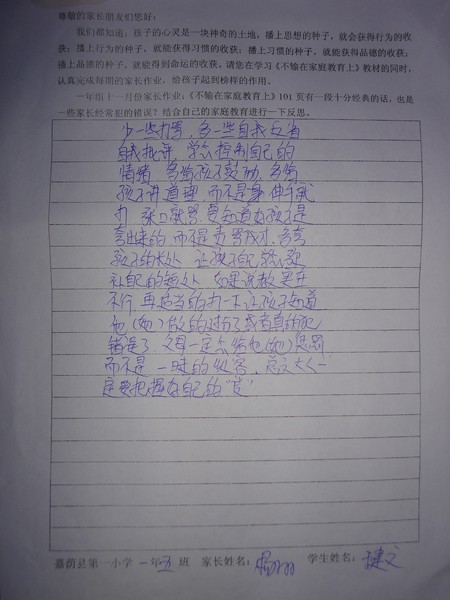 尊敬的家长朋友们您好：
我们都知道：孩子的心灵是一块神奇的土地，播上思想的种子，就会获得行为的收
获；播上行为的种子，就能获得习惯的收获；播上习惯的种子，就能获得品德的收获；
播上品德的种子，就能得到命运的收获。请您在学习《不输在家庭教育上》教材的同时，
认真完成每期的家长作业，给孩子起到榜样的作用。
一年组十一月份家长作业：《不输在家庭教育上》101页有一段十分经典的话，也是
一些家长经常犯的错误？结合自己的家庭教育进行一下反思。
少一些打骂，多一些自我反省
自我批评 学会控制自己的
情绪 多给孩子鼓励，多给
孩子讲道理，而不是身 伸手就
打 张口就骂，要知道好孩子是
夸出来的，而不是责骂成才，多夸
孩子的长处 让孩子自己
补自己的短处 如果说教实在
不行，再适当的打一下让孩子知道
他（她）做的过份了或者真的犯
错误了，父母一定会给他（她）惩罚
而不是一时的，总之大人一
定要把握好自己的“度”
嘉荫县第一小学 一年五班 家长姓名： 学生姓名：